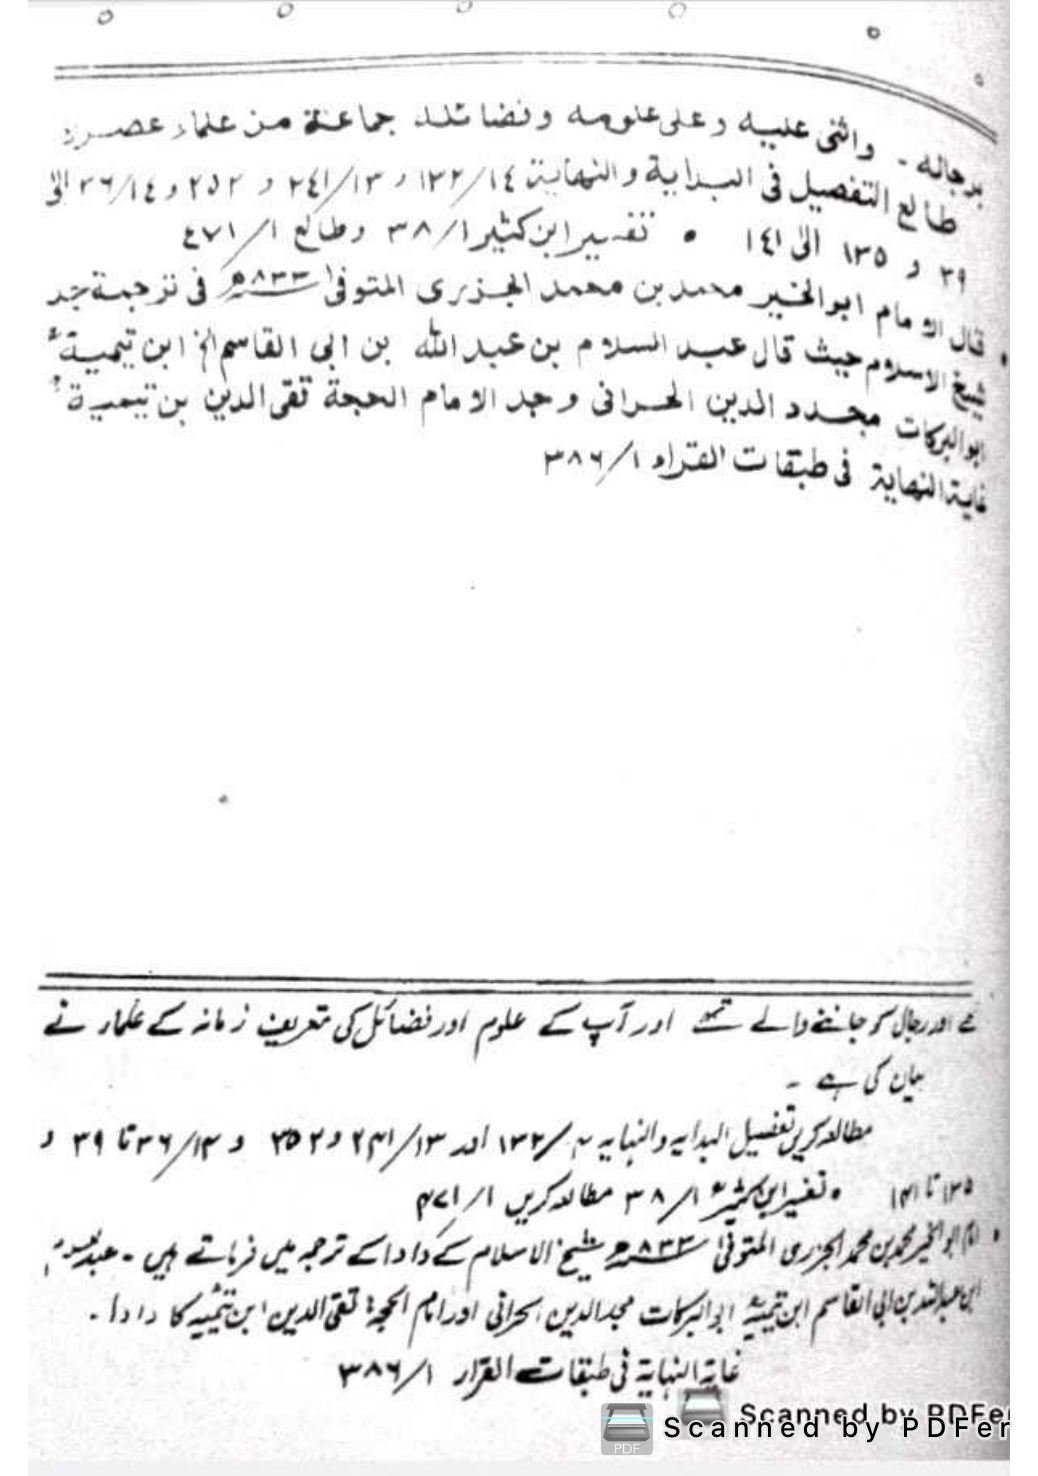 برجاله ۔ واثنى عليه وعلى علومه وفضائله جماعة من علماء عصره
طالع التفصيل فى البداية والنهاية ١٣٢/١٤ و ٢٤١/١٣ و ٢٥٢ و ٣٦/١٤ الى
٣٩ و ١٣٥ الى ١٤١ • تفسير ابن كثير ٣٨/١ وطالع ٤٧١/١
• قال الامام ابوالخير محمد بن محمد الجزرى المتوفى ٨٣٣ھ فى ترجمة جد
شيخ الاسلام حيث قال عبد السلام بن عبدالله بن ابى القاسم الخ ابن تيمية
ابوالبركات مجدد الدين الحرانى وجد الامام الحجة تقى الدين بن تيمية
غاية النهاية فى طبقات القراء ٣٨٦/١
تھے اور رجال کو جاننے والے تھے اور آپ کے علوم اور فضائل کی تعریف زمانہ کے علماء نے
بیان کی ہے ۔
مطالعہ کریں تفصیل البدایہ والنہایہ ۱۳۲/۱۴ اور ۲۴۱/۱۳ و ۲۵۲ و ۳۶/۱۴ تا ۳۹ و
۱۳۵ تا ۱۴۱ • تفسیر ابن کثیر ۳۸/۱ مطالعہ کریں ۴۷۱/۱
• امام ابوالخیر محمد بن محمد الجزری المتوفیٰ ۸۳۳ھ شیخ الاسلام کے دادا کے ترجمہ میں فرماتے ہیں ۔ عبدالسلام
ابن عبداللہ بن ابی القاسم ابن تیمیہ ابوالبرکات مجدالدین الحرانی اور امام الحجۃ تقی الدین ابن تیمیہ کا دادا ۔
غایۃ النہایۃ فی طبقات القراء ۳۸۶/۱
Scanned by PDFer
PDF Scanned by PDFer